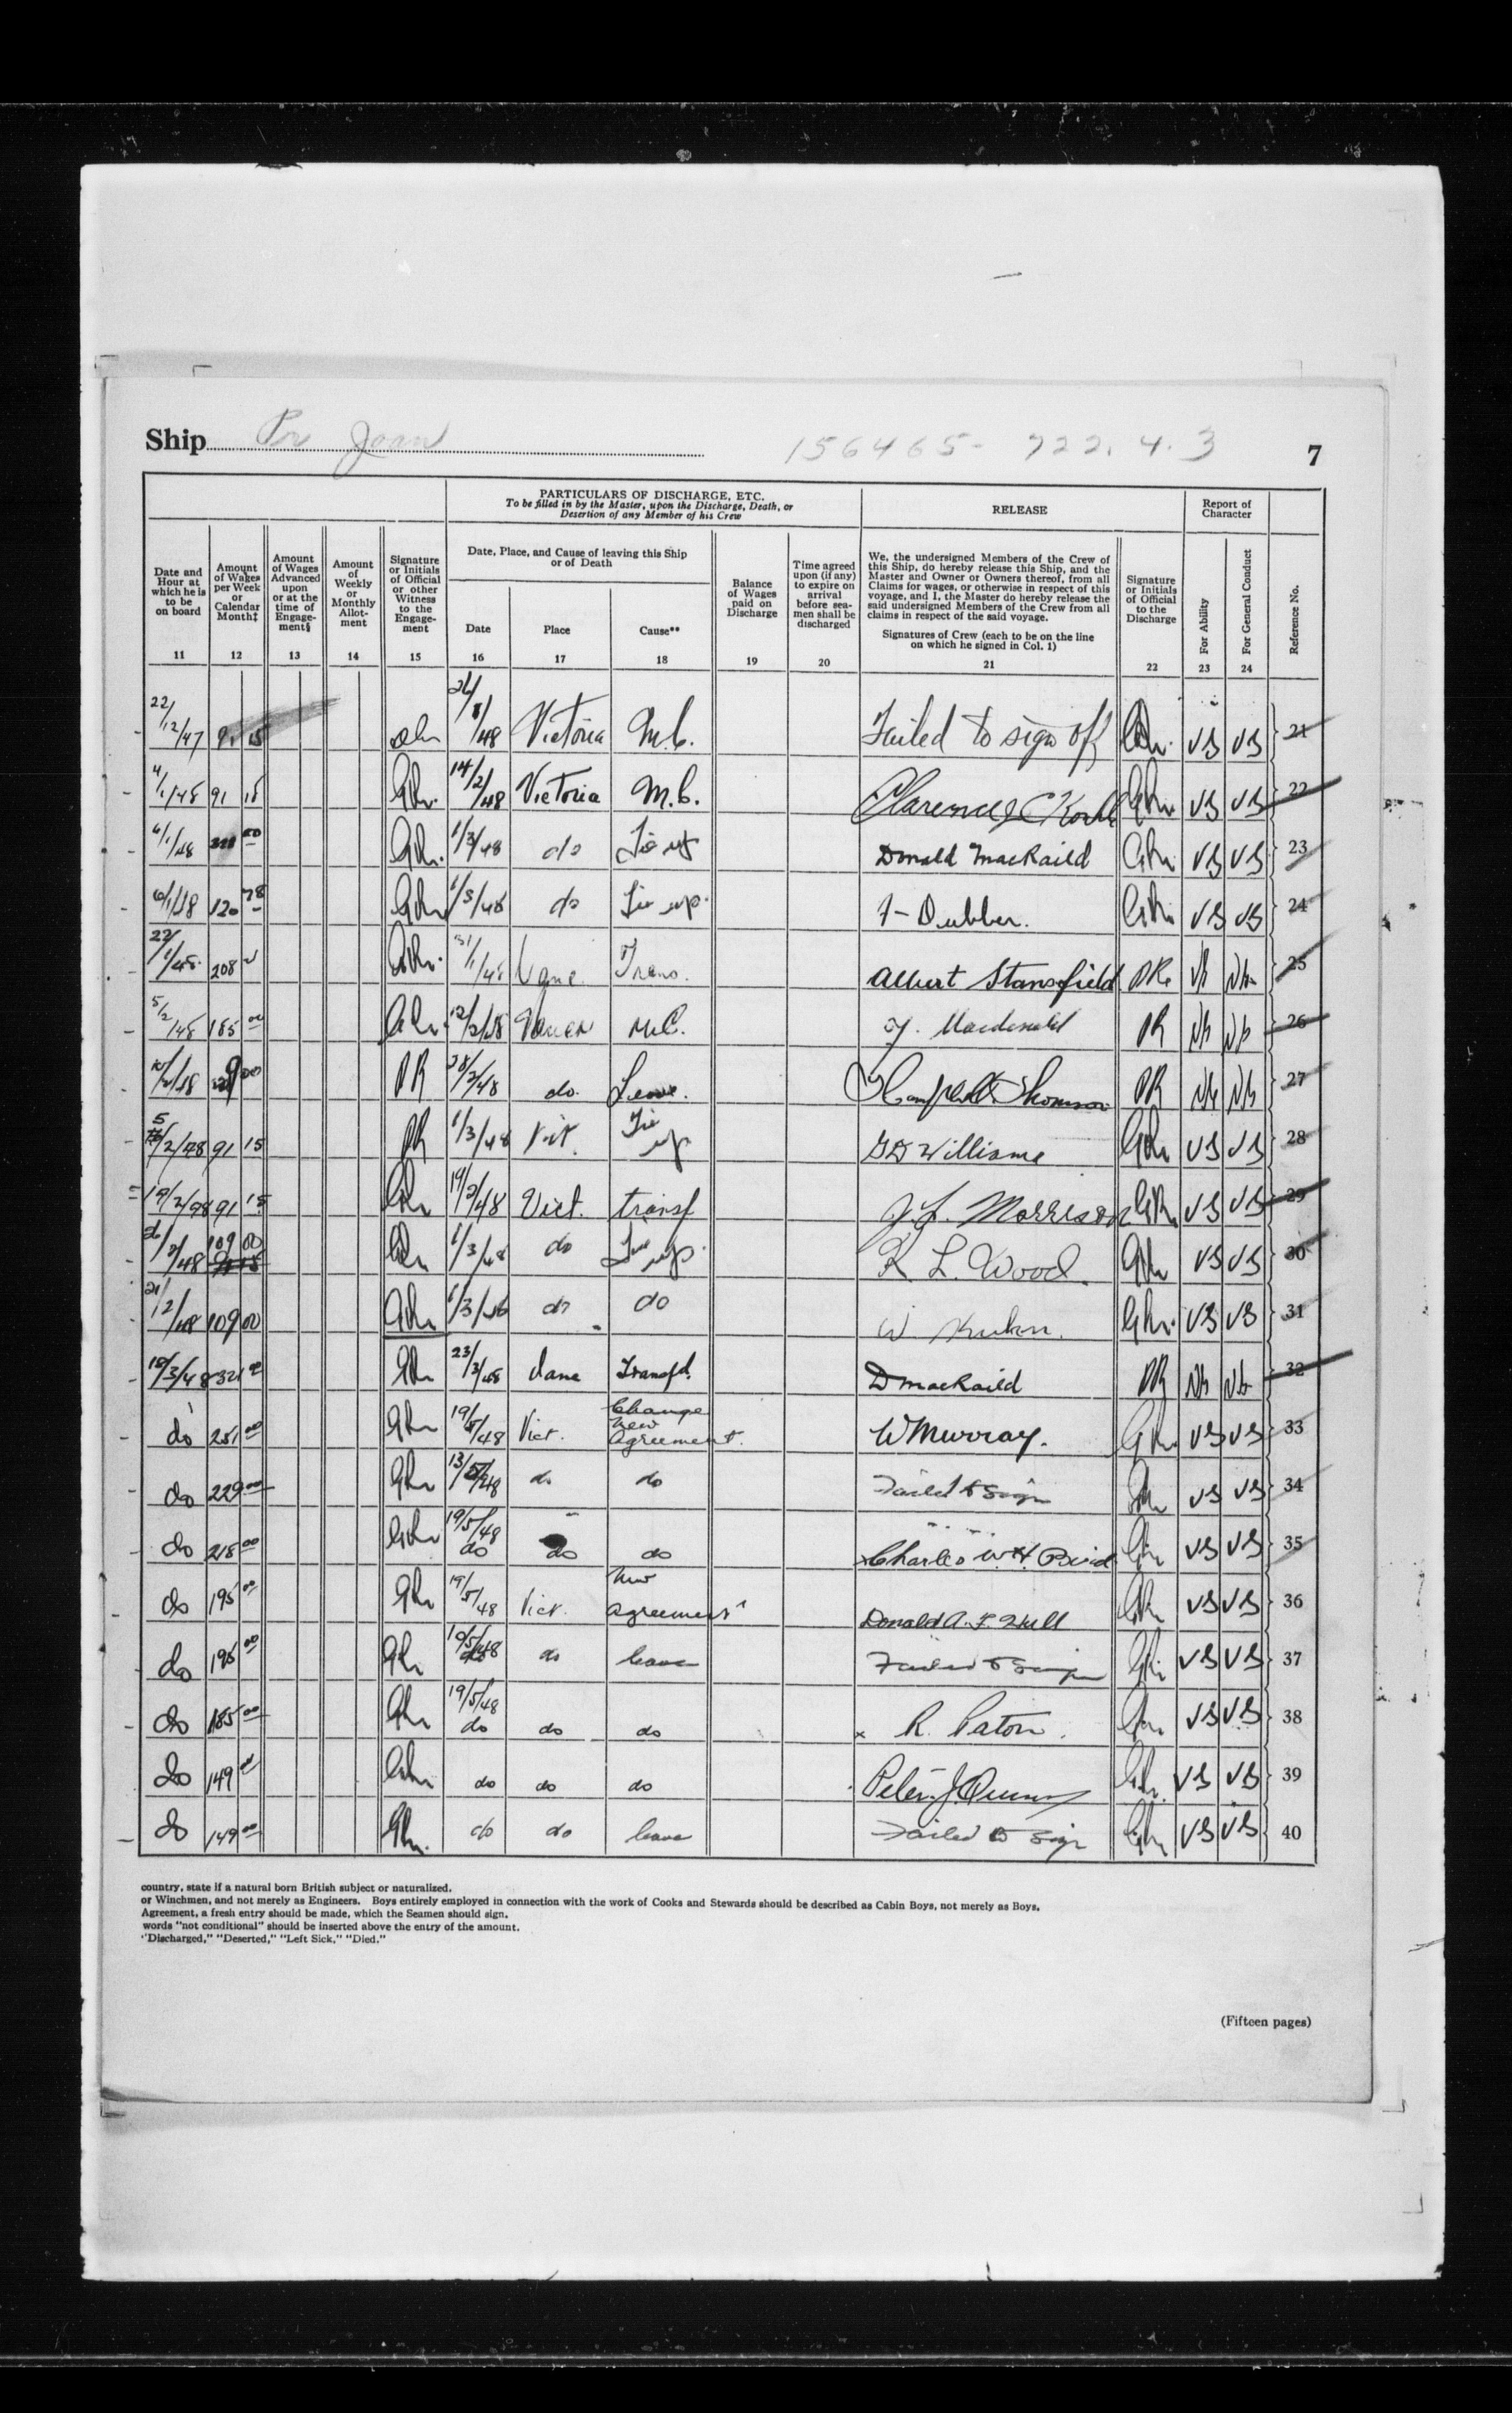 Ship Pr Joan 156465- 722.4.3 7
PARTICULARS OF DISCHARGE, ETC.
To be filled in by the Master, upon the Discharge, Death, or
Desertion of any Member of his Crew
RELEASE
Report of
Character
Date and
Hour at
which he is
to be
on board
11
Amount
of Wages
per Week
or
Calendar
Month‡
12
Amount
of Wages
Advanced
upon
or at the
time of
Engage-
ment§
13
Amount
of
Weekly
or
Monthly
Allot-
ment
14
Signature
or Initials
of Official
or other
Witness
to the
Engage-
ment
15
Date, Place, and Cause of leaving this Ship
or of Death
Date
16
Place
17
Cause**
18
Balance
of Wages
paid on
Discharge
19
Time agreed
upon (if any)
to expire on
arrival
before sea-
men shall be
discharged
20
We, the undersigned Members of the Crew of
this Ship, do hereby release this Ship, and the
Master and Owner or Owners thereof, from all
Claims for wages, or otherwise in respect of this
voyage, and I, the Master do hereby release the
said undersigned Members of the Crew from all
claims in respect of the said voyage.
Signatures of Crew (each to be on the line
on which he signed in Col. 1)
21
Signature
or Initials
of Official
to the
Discharge
22
For Ability
23
For General Conduct
24
Reference No.
22/12/47 91 15 Victoria M.C. Failed to sign off VG VG 21
91 15 14/2/48 Victoria M.C. Clarence VG VG 22
6/1/48 1/3/48 do Tie up Donald MacRaild VG VG 23
6/1/48 120 78 1/3/48 do Tie up. Dubber. VG VG 24
208 31/1/48 Vanc. Trans. Albert Stansfield 25
5/2/48 185 00 12/2/48 M.C. Macdonald PR 26
PR 28/2/48 do. Leave. Thomson PR 27
5/2/48 91 15 PR 1/3/48 Vict. Tie up G D Williams VG VG 28
19/2/48 91 15 19/2/48 Vict. transf J. J. Morrison VG VG 29
109 00 1/3/48 do Tie up. R L. Wood. VG VG 30
21/2/48 109 00 1/3/48 do do W. Kuhn. VG VG 31
10/3/48 321 00 23/3/48 Vanc Transfd. D MacRaild PR 32
do 251 00 19/5/48 Vict. Change
New
Agreement. W Murray. VG VG 33
do 229 00 do do Failed to Sign VG VG 34
do 218 00 19/5/48
do do do Charles W. H. VG VG 35
do 195 00 19/5/48 Vict. New
Agreement Donald A. F. Hull VG VG 36
do 195 00 19/5/48 do leave Failed to Sign VG VG 37
do 185 00 19/5/48
do do do x R. Paton. VG VG 38
do 149 00 do do do Peter J. VG VG 39
do 149 00 do do leave Failed to Sign VG VG 40
country, state if a natural born British subject or naturalized.
or Winchmen, and not merely as Engineers. Boys entirely employed in connection with the work of Cooks and Stewards should be described as Cabin Boys, not merely as Boys.
Agreement, a fresh entry should be made, which the Seamen should sign.
words "not conditional" should be inserted above the entry of the amount.
"Discharged," "Deserted," "Left Sick," "Died."
(Fifteen pages)